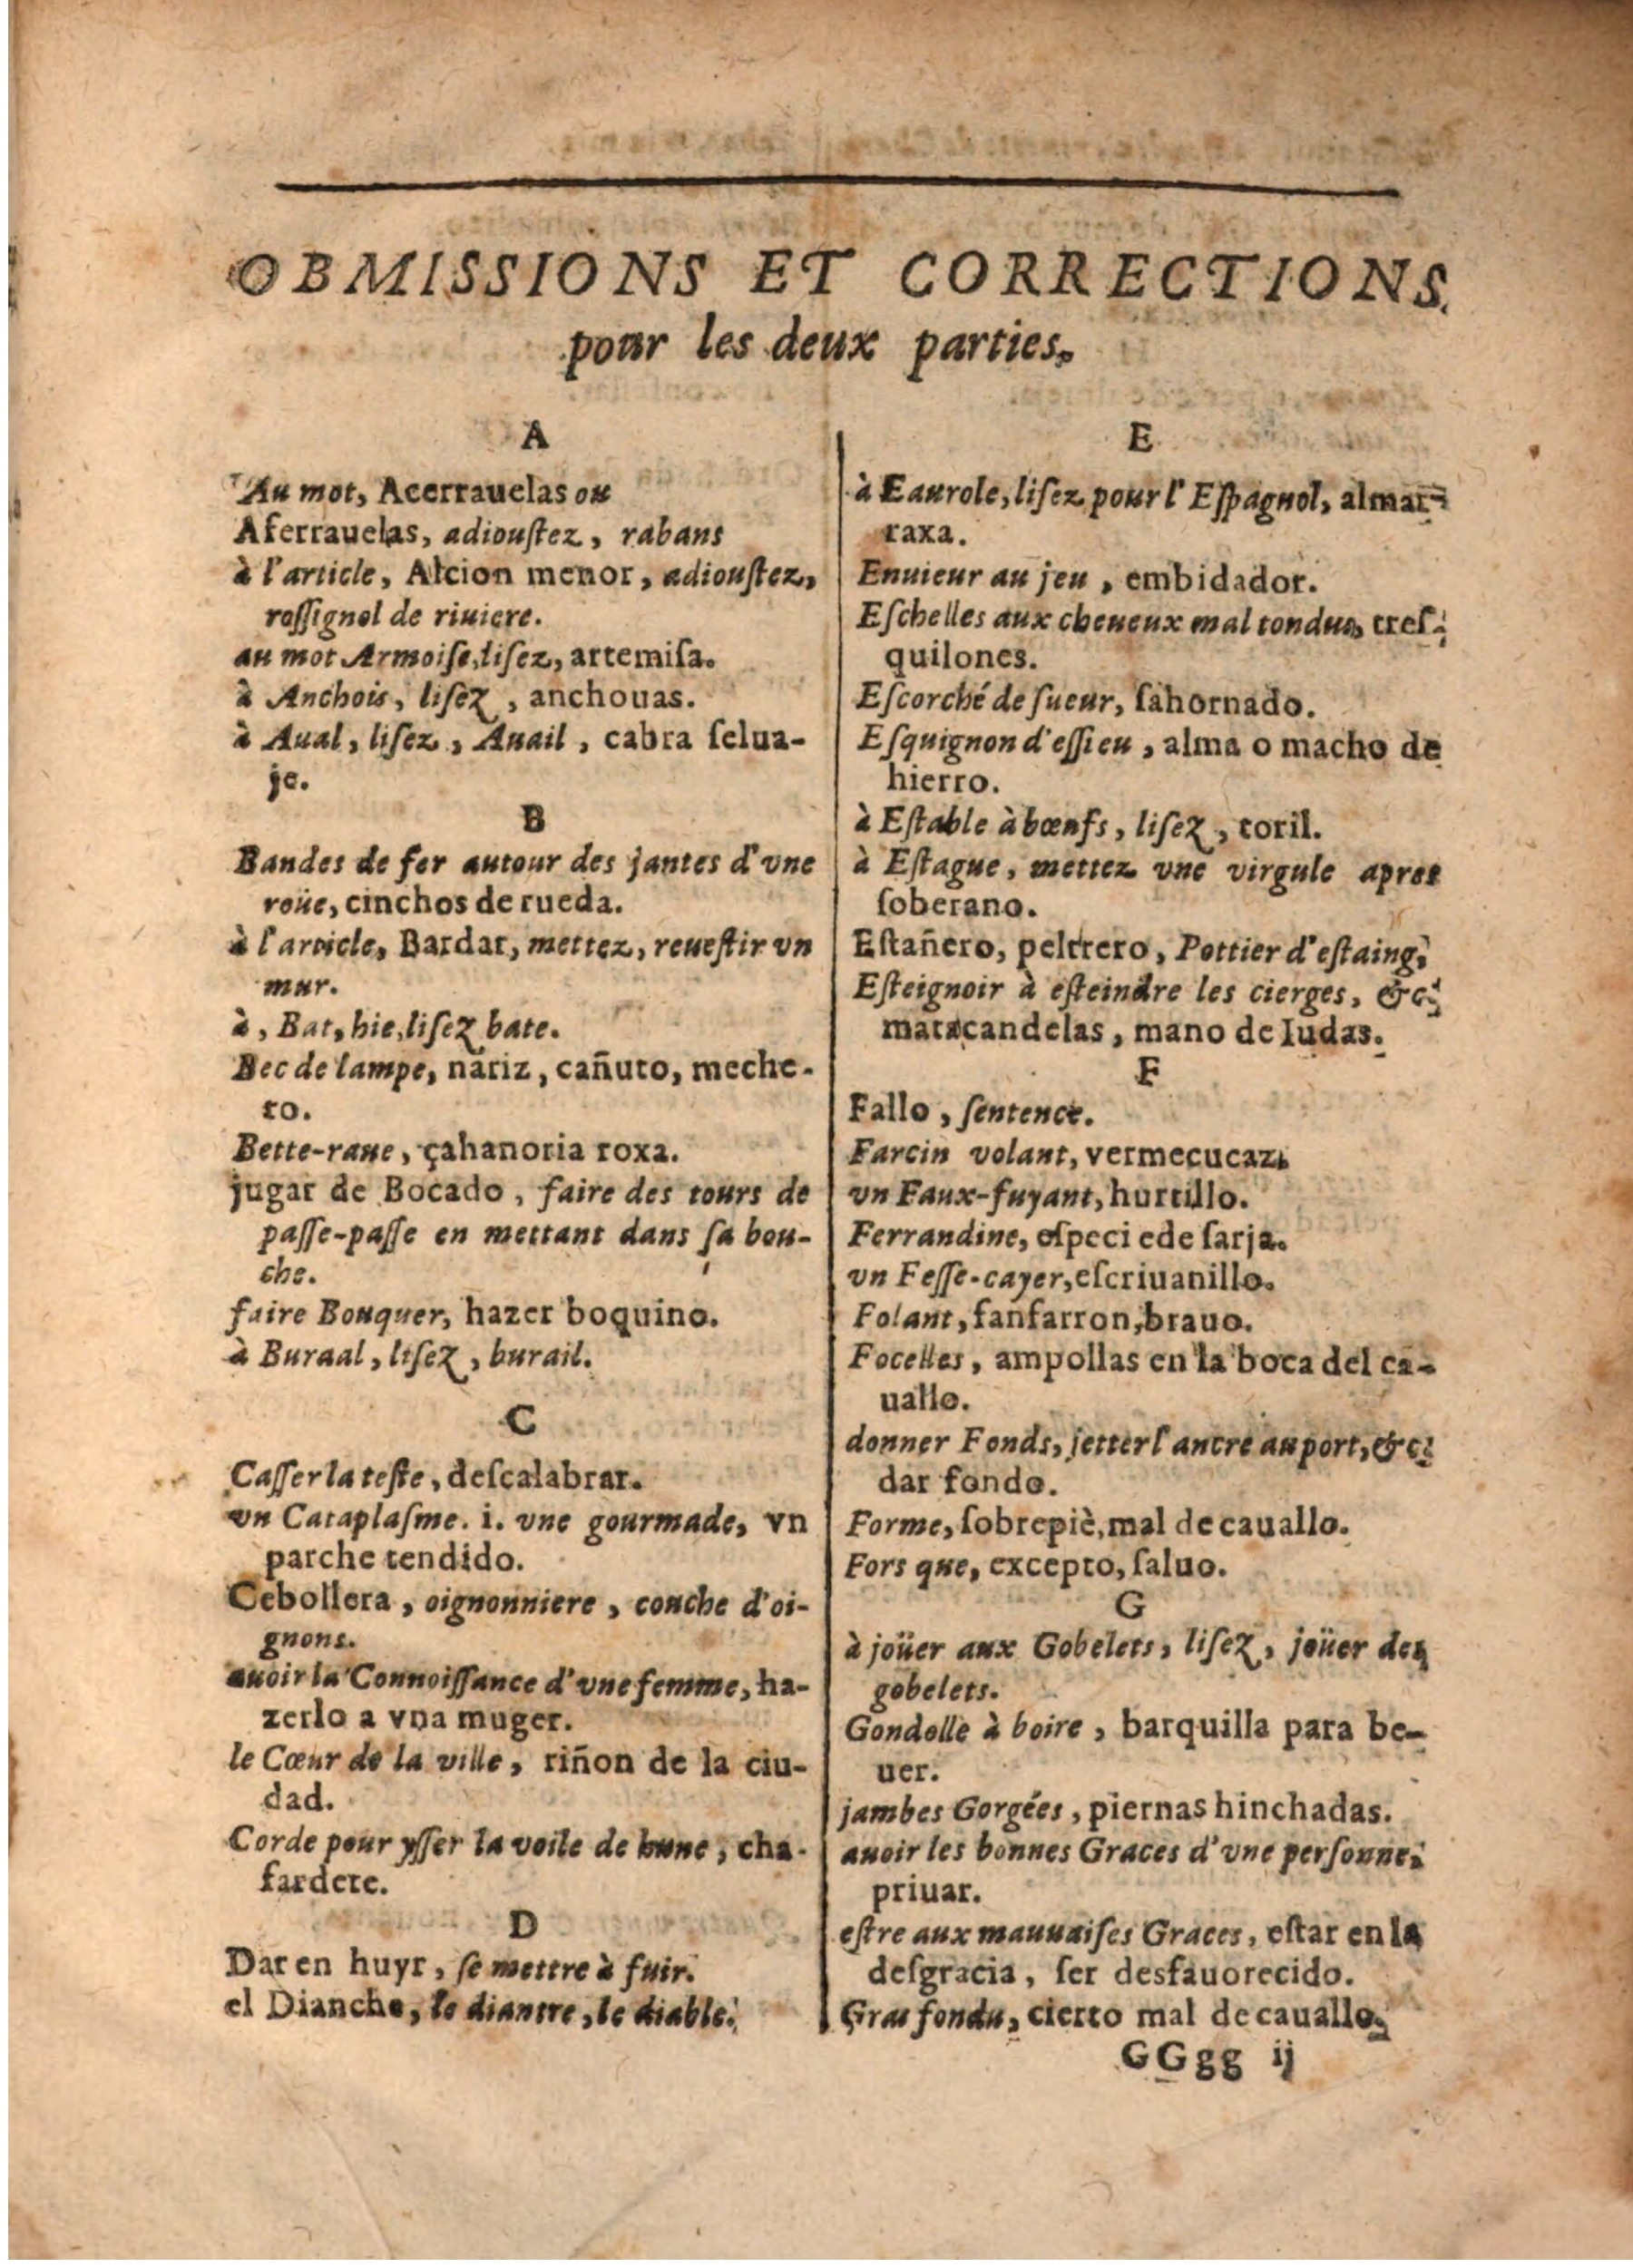 OBMISSIONS ET CORRECTIONS.
pour les deux parties.
A
Au mot, Acerrauelas ou
Aferrauelas, adiouſtez, rabans
à l'article, Alcion menor, adiouſtez,
roſſignol de riuiere.
au mot Armoiſe, liſez, artemiſa.
à Anchois, liſez, anchouas.
à Aual, liſez, Auail, cabra ſelua-
je.
B
Bandes de fer autour des jantes d'vne
roüe, cinchos de rueda.
à l'article, Bardar, mettez, reueſtir vn
mur.
à, Bat, hie, liſez bate.
Bec de lampe, nariz, cañuto, meche-
ro.
Bette-raue, çahanoria roxa.
jugar de Bocado, faire des tours de
paſſe-paſſe en mettant dans ſa bou-
che.
faire Bouquer, hazer boquino.
à Buraal, liſez, burail.
C
Caſſer la teſte, deſcalabrar.
vn Cataplaſme. i. vne gourmade, vn
parche tendido.
Cebollera, oignonniere, couche d'oi-
gnons.
auoir la Connoiſſance d'vne femme, ha-
zerlo a vna muger.
le Cœur de la ville, riñon de la ciu-
dad.
Corde pour yſſer la voile de hune, cha-
fardete.
D
Dar en huyr, ſe mettre à fuir.
el Dianche, le diantre, le diable.
E
à Eaurole, liſez pour l'Eſpagnol, almar-
raxa.
Enuieur au jeu, embidador.
Eſchelles aux cheueux mal tondus, treſ-
quilones.
Eſcorché de ſueur, ſahornado.
Eſquignon d'eſſieu, alma o macho de
hierro.
à Eſtable à bœufs, liſez, toril.
à Eſtague, mettez vne virgule apres
ſoberano.
Eſtañero, peltrero, Pottier d'eſtaing.
Eſteignoir à eſteindre les cierges, &c.
matacandelas, mano de Iudas.
F
Fallo, ſentence.
Farcin volant, vermecucaz.
vn Faux-fuyant, hurtillo.
Ferrandine, eſpeci ede ſarja.
vn Feſſe-cayer, eſcriuanillo.
Folant, fanfarron, brauo.
Focelles, ampollas en la boca del ca-
uallo.
donner Fonds, jetter l'ancre au port, &c.
dar fondo.
Forme, ſobrepiè, mal de cauallo.
Fors que, excepto, ſaluo.
G
à joüer aux Gobelets, liſez, joüer des
gobelets.
Gondolle à boire, barquilla para be-
uer.
jambes Gorgées, piernas hinchadas.
auoir les bonnes Graces d'vne perſonne,
priuar.
eſtre aux mauuaiſes Graces, eſtar en la
deſgracia, ſer desfauorecido.
Gras fondu, cierto mal de cauallo.
GGgg ij